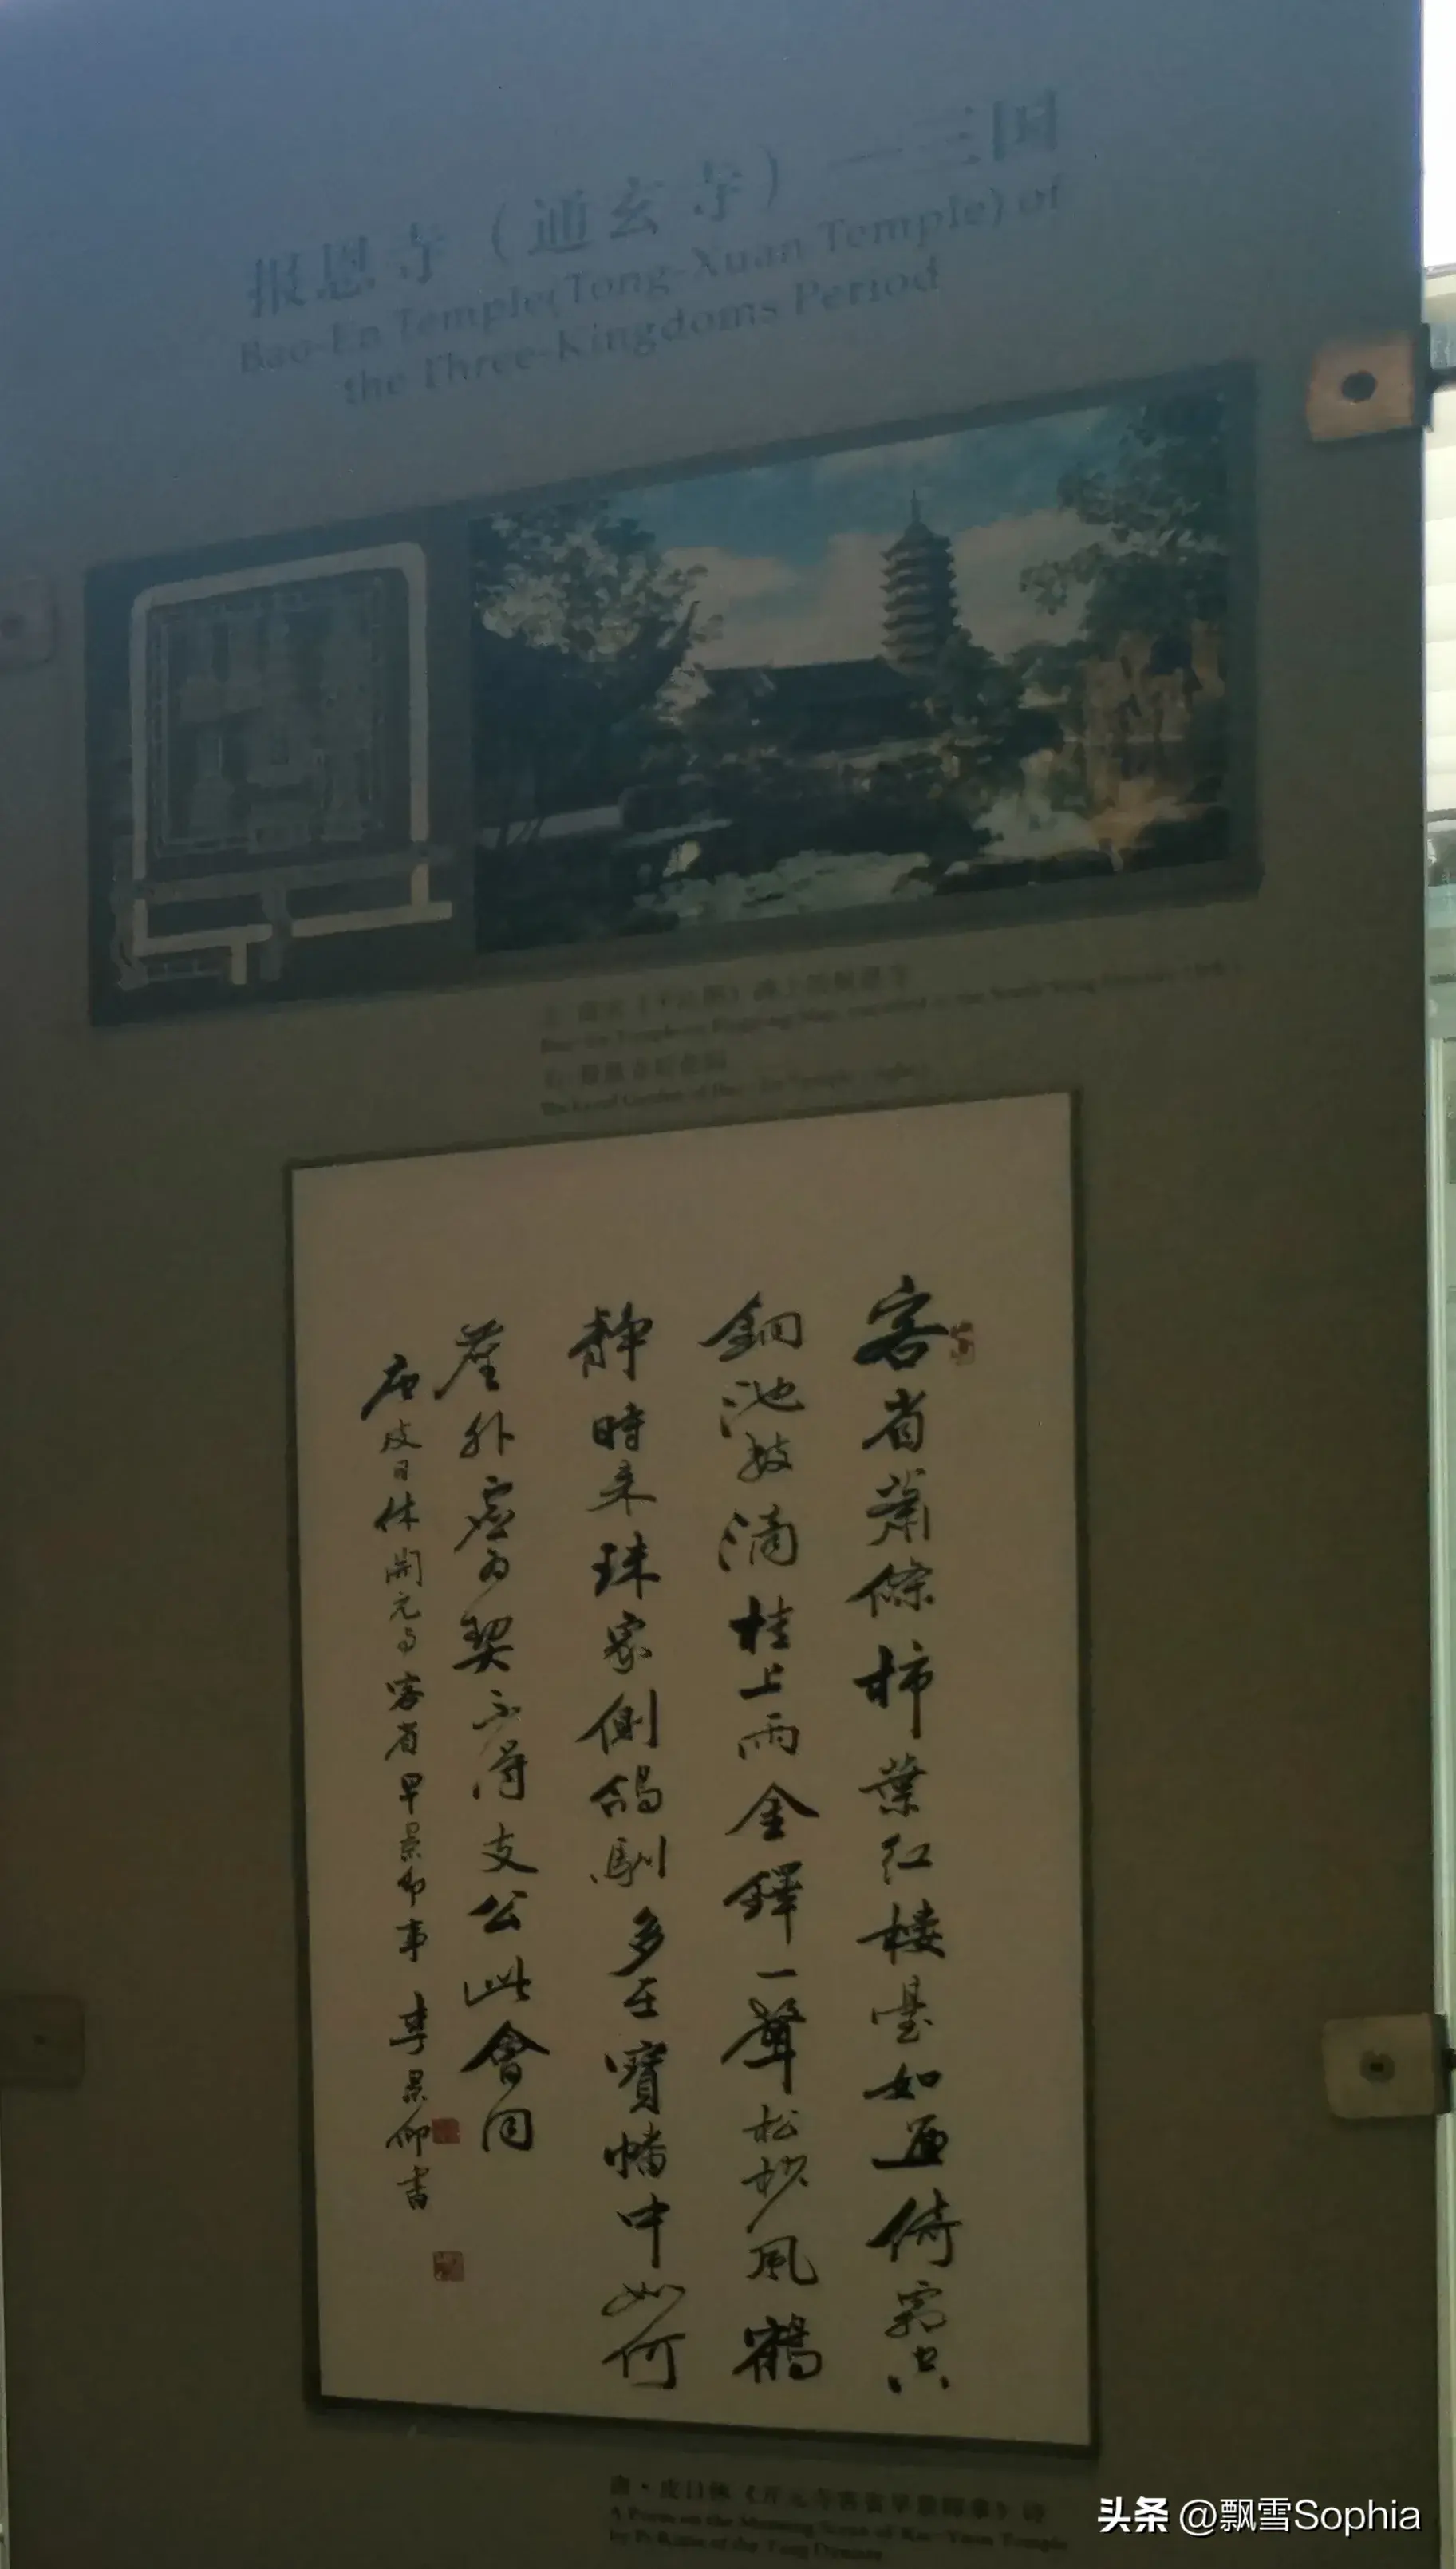 报恩寺（通玄寺）—三国
Bao-En Temple(Tong-Xuan Temple) of
the Three-Kingdoms Period
客省蕭條柿葉紅樓臺如畫倚霜空
銅池數滴桂上雨金鐸一聲松杪風鶴
靜時來珠象側鴿馴多在寶幡中如何
塵外虛為契不得支公此會同
唐皮日休開元寺客省早景即事 李景仰書
唐·皮日休《开元寺客省早景即事》诗
A Poem on the Morning Scene of Kai-Yuan Temple
by Pi Rixiu of the Tang Dynasty
头条 @飘雪Sophia